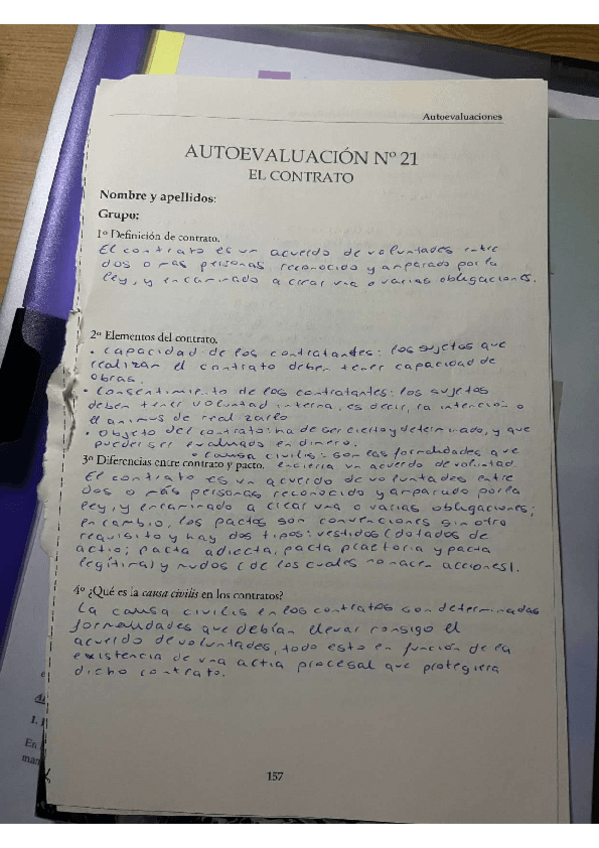 Autoevaluaciones
AUTOEVALUACIÓN Nº 21
EL CONTRATO
Nombre y apellidos:
Grupo:
1º Definición de contrato.
El contrato es un acuerdo de voluntades entre
dos o más personas, reconocido y amparado por la
ley, y encaminado a crear una o varias obligaciones.
2º Elementos del contrato.
• Capacidad de los contratantes: los sujetos que
realizan el contrato deben tener capacidad de
obras.
• Consentimiento de los contratantes: los sujetos
deben tener voluntad interna, es decir, la intención o
el animus de realizarlo
• Objeto del contrato: ha de ser cierto y determinado, y que
pueder ser evaluados en dinero.
• Causa civilis: son las formalidades que
3º Diferencias entre contrato y pacto. encierra un acuerdo de voluntad
El contrato es un acuerdo de voluntades entre
dos o más personas reconocido y amparado por la
ley, y encaminado a crear una o varias obligaciones;
en cambio, los pactos son convenciones sin otro
requisito y hay dos tipos: vestidos (dotados de
actio; pacta adiecta, pacta praetoria y pacta
legítima) y nudos (de los cuales no nacen acciones).
4º ¿Qué es la causa civilis en los contratos?
La causa civilis en los contratos son determinadas
formalidades que debían llevar consigo el
acuerdo de voluntades, todo esto en función de la
existencia de una actia procesal que protegiera
dicho contrato.
157
1.
En
man